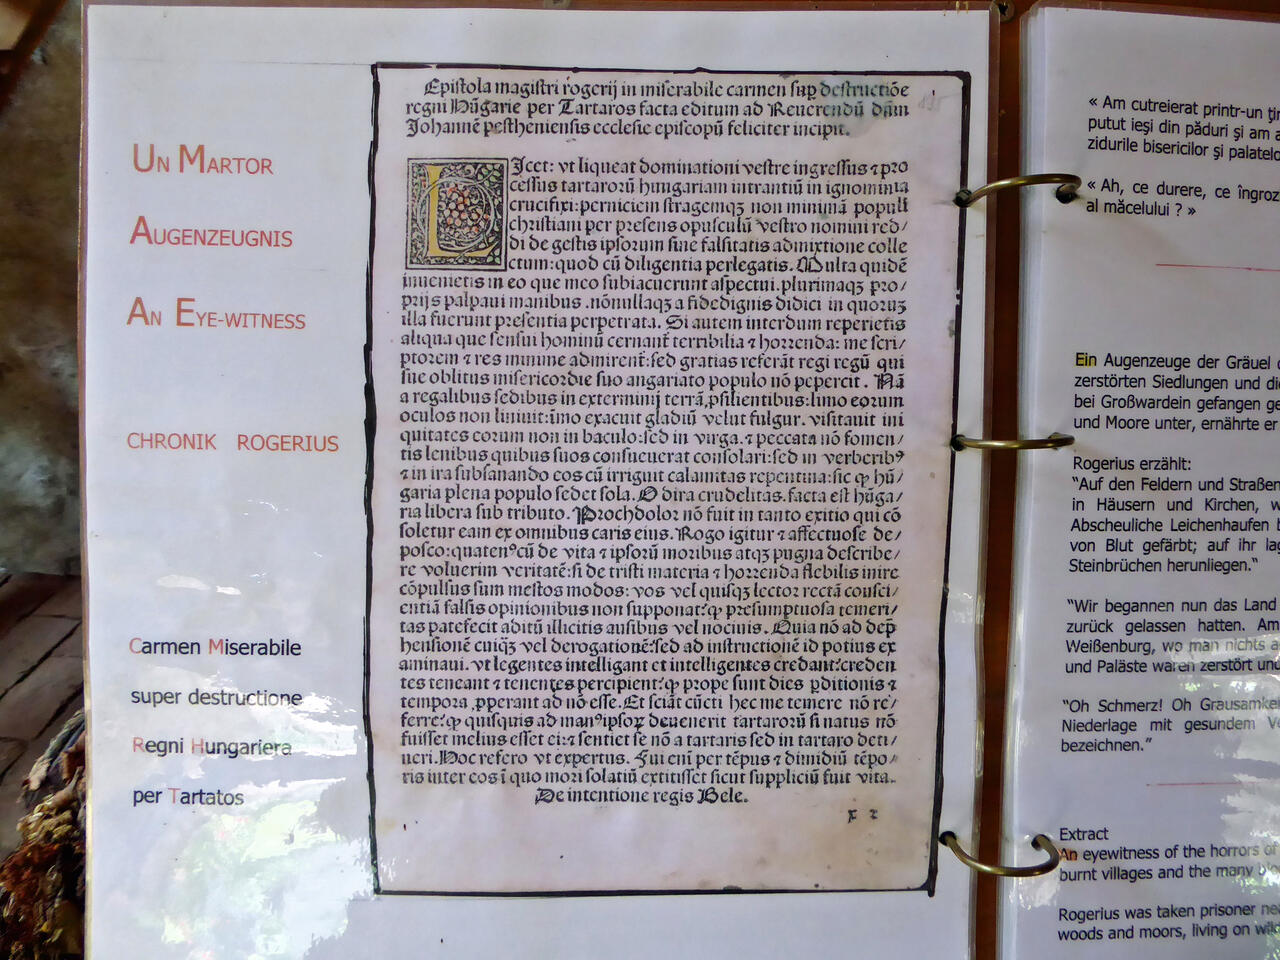 UN MARTOR
AUGENZEUGNIS
AN EYE-WITNESS
CHRONIK ROGERIUS
Carmen Miserabile
super destructione
Regni Hungariera
per Tartatos
Epistola magistri rogerij in miserabile carmen sup destructiõe
regni Hũgarie per Tartaros facta editum ad Reuerendũ dñm
Johannẽ pestheniensis ecclesie episcopũ feliciter incipit.
LIcet: vt liqueat dominationi vestre ingressus ⁊ pro
cessus tartarorũ hungariam intrantiũ in ignominia
crucifixi: perniciem stragemqꝫ non minimã populi
christiani per presens opusculũ vestro nomini red/
di de gestis ipsorum sine falsitatis admixtione colle
ctum: quod cũ diligentia perlegatis. Multa quidẽ
inuenietis in eo que meo subiacuerunt aspectui. plurimaqꝫ pro/
prijs palpaui manibus. nõnullaqꝫ a fidedignis didici in quoruꝫ
illa fuerunt presentia perpetrata. Si autem interdum reperietis
aliqua que sensui hominũ cernant̃ terribilia ⁊ horrenda: me scri/
ptorem ⁊ res minime admirent̃: sed gratias referãt regi regũ qui
sue oblitus misericordie suo angariato populo nõ pepercit. Nã
a regalibus sedibus in exterminij terrã ꝓsilientibus: limo eorum
oculos non liniuit: imo exacuit gladiũ velut fulgur. visitauit ini
quitates eorum non in baculo: sed in virga. ⁊ peccata nõ fomen/
tis lenibus quibus suos consueuerat consolari: sed in verberibꝰ
⁊ in ira subsanando eos cũ irriguit calamitas repentina: sic ꝙ hũ/
garia plena populo sedet sola. O dira crudelitas. facta est hũga/
ria libera sub tributo. Prochdolor nõ fuit in tanto exitio qui cõ
soletur eam ex omnibus caris eius. Rogo igitur ⁊ affectuose de/
posco: quatenꝰ cũ de vita ⁊ ipsorũ moribus atqꝫ pugna describe/
re voluerim veritatẽ: si de tristi materia ⁊ horrenda flebilis inire
cõpulsus sum mestos modos: vos vel quisqꝫ lector rectã consci/
entiã falsis opinionibus non supponat: ꝙ presumptuosa temeri/
tas patefecit aditũ illicitis ausibus vel nociuis. Quia nõ ad dep̃
hensionẽ cuiqꝫ vel derogationẽ: sed ad instructionẽ id potius ex
aminaui. vt legentes intelligant et intelligentes credant: creden
tes teneant ⁊ tenentes percipient: ꝙ prope sunt dies ꝑditionis ⁊
tempora ꝓperant ad nõ esse. Et sciãt cũcti hec me temere nõ re/
ferre: ꝙ quisquis ad manꝰ ipsoꝝ deuenerit tartarorũ si natus nõ
fuisset melius esset ei: ⁊ sentiet se nõ a tartaris sed in tartaro deti/
neri. Hoc refero vt expertus. Fui enĩ per tẽpus ⁊ dimidiũ tẽpo/
ris inter eos ĩ quo mori solatiũ extitisset sicut suppliciũ fuit vita.
De intentione regis Bele.
« Am cutreierat printr-un
putut ieşi din păduri şi am
zidurile bisericilor şi palatelor
« Ah, ce durere, ce
al măcelului ? »
Ein Augenzeuge der Gräuel
zerstörten Siedlungen und
bei Großwardein gefangen
und Moore unter, ernährte er
Rogerius erzählt:
"Auf den Feldern und Straßen
in Häusern und Kirchen,
Abscheuliche Leichenhaufen
von Blut gefärbt; auf ihr
Steinbrüchen herunliegen."
"Wir begannen nun das Land
zurück gelassen hatten.
Weißenburg, wo man nichts
und Paläste waren zerstört
"Oh Schmerz! Oh
Niederlage mit gesundem
bezeichnen."
Extract
An eyewitness of the horrors of
burnt villages and the many
Rogerius was taken prisoner
woods and moors, living on